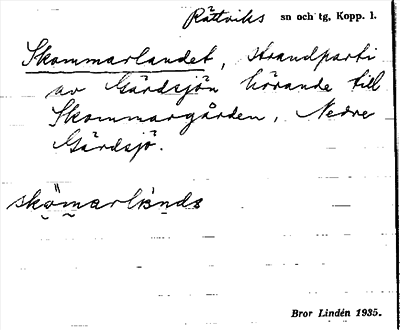 Rättviks sn och tg, Kopp. l.
Skommarlandet, strandparti
av Gärdsjön hörande till
Skommargården, Nedre
Gärdsjö.
Bror Lindén 1935.